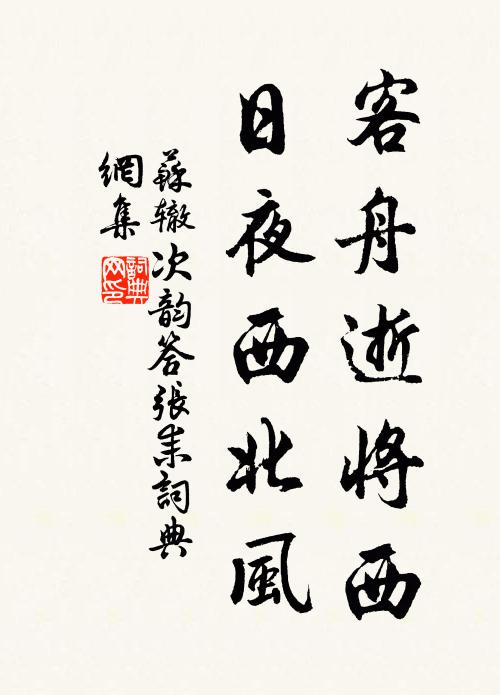 客舟逝將西
日夜西北風
蘇轍次韵答張耒詞典
網集
詞典
网印